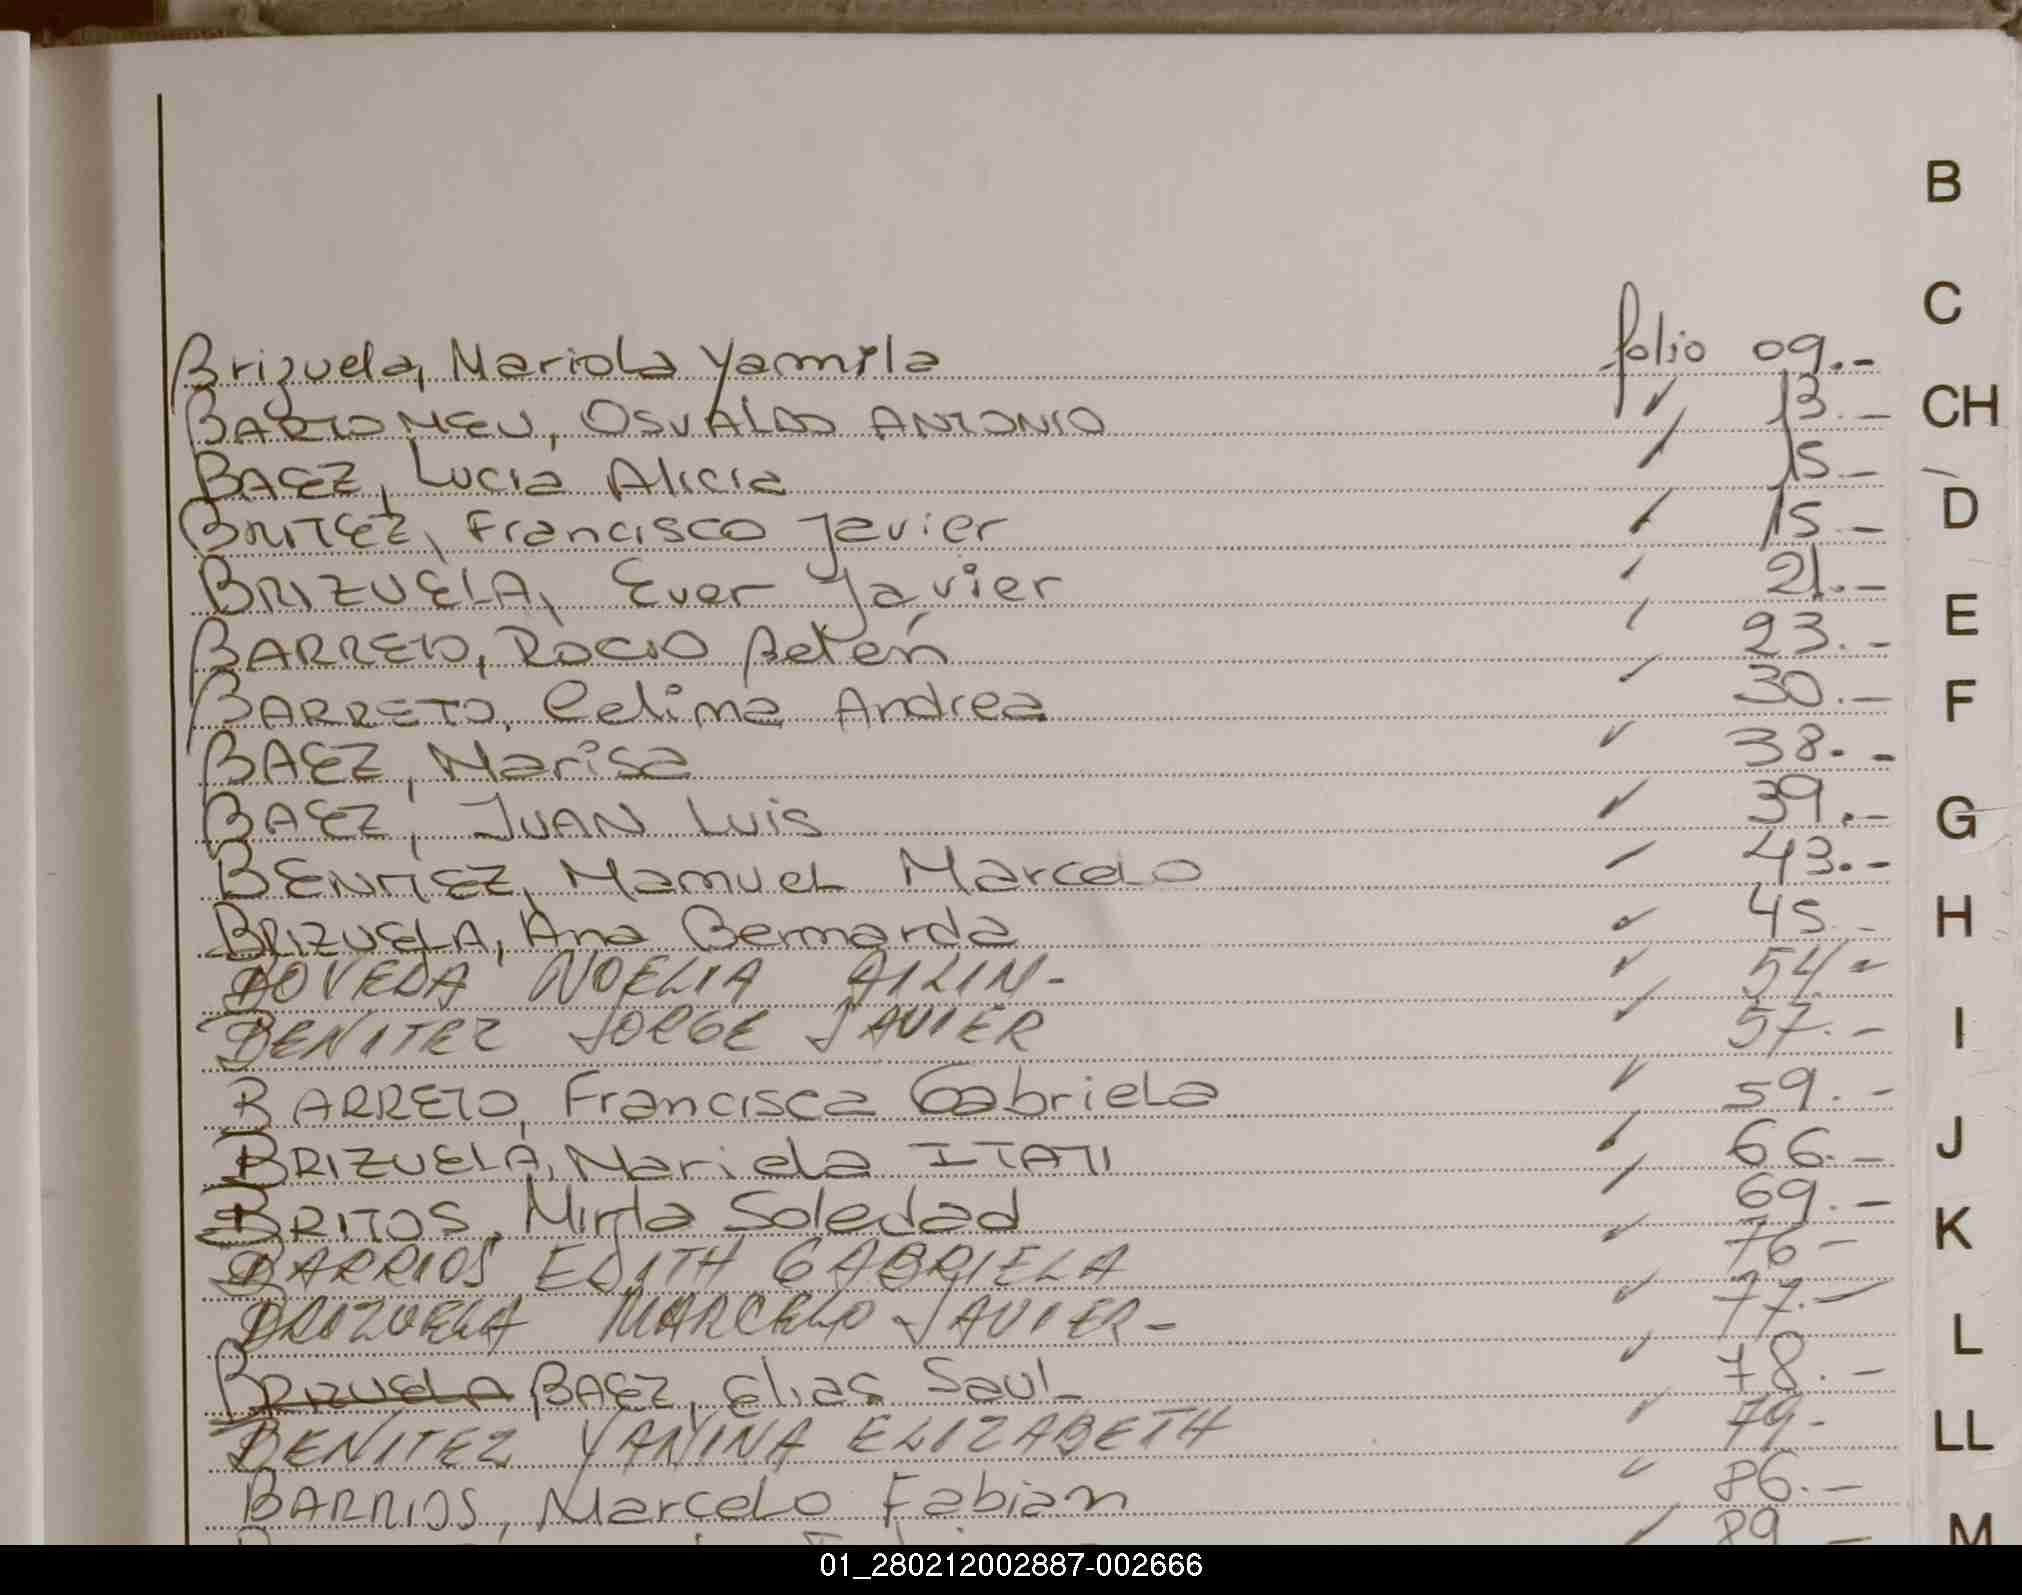 B
C
Brizuela, Mariola Yamila folio 09.-
CH
BARTOMEU, OSVALDO ANTONIO ✓ 13.-
BAEZ, Lucia Alicia ✓ 15-
D
BRITEZ, Francisco Javier ✓ 15.-
BRIZUELA, Ever Javier ✓ 21.-
E
BARRETO, ROCIO Belén ✓ 23.-
BARRETO, Celima Andrea ✓ 30.-
F
BAEZ, Marisa ✓ 38.-
BAEZ, JUAN LUIS ✓ 39.-
G
BENITEZ, Manuel Marcelo ✓ 43.-
BRIZUELA, Ana Bernarda ✓ 45.-
H
BOVEDA NOELIA AILIN- ✓ 54-
BENITEZ JORGE JAVIER ✓ 57.-
I
BARRETO, Francisca Gabriela ✓ 59.-
BRIZUELA, Mariela ITATI ✓ 66.-
J
BRITOS, Mirta Soledad ✓ 69.-
K
BARRIOS EDITH GABRIELA ✓ 76-
BRIZUELA MARCELO JAVIER- ✓ 77.-
L
BRIZUELA BAEZ, Elias Saul- ✓ 78.-
BENITEZ YANINA ELIZABETH ✓ 79-
LL
BARRIOS, Marcelo Fabian ✓ 86.-
✓ 89-
M
01_280212002887-002666